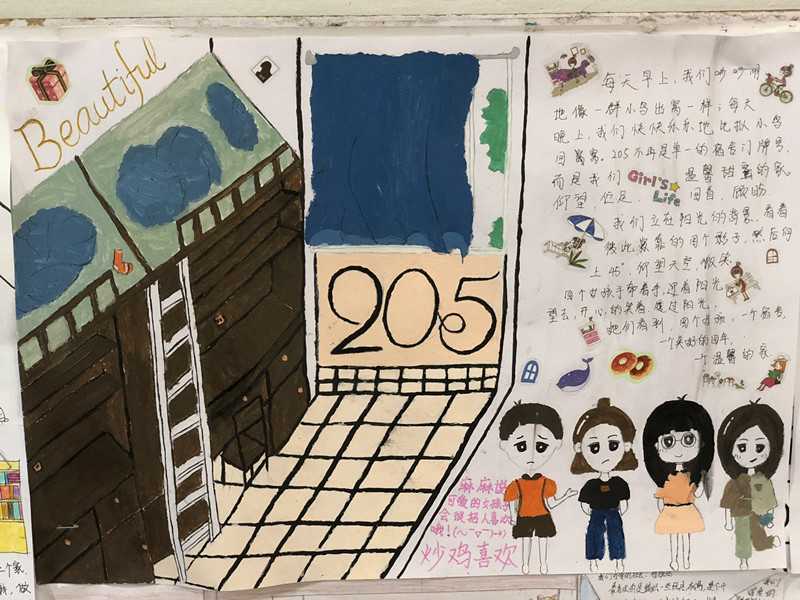 Beautiful
205
每天早上，我们吵吵闹闹
地像一群小鸟出窝一样；每天
晚上，我们快快乐乐地比拟小鸟
回窝窝，205不再是单一的宿舍门牌号，
而是我们 温馨甜蜜的家
Girl's Life
仰望 但是， 回首，
我们立在阳光的背景，看着
彼此紧靠的四个影子，然后向
上45°，仰望天空，微笑。
四个女孩手牵着手，迎着阳光
望去，开心的笑着度过阳光。
她们看到，四个女孩，一个宿舍，
一个美好的四年，
一个温馨的家
麻麻说
可爱的女孩子
会很招人喜欢
哦！
炒鸡喜欢